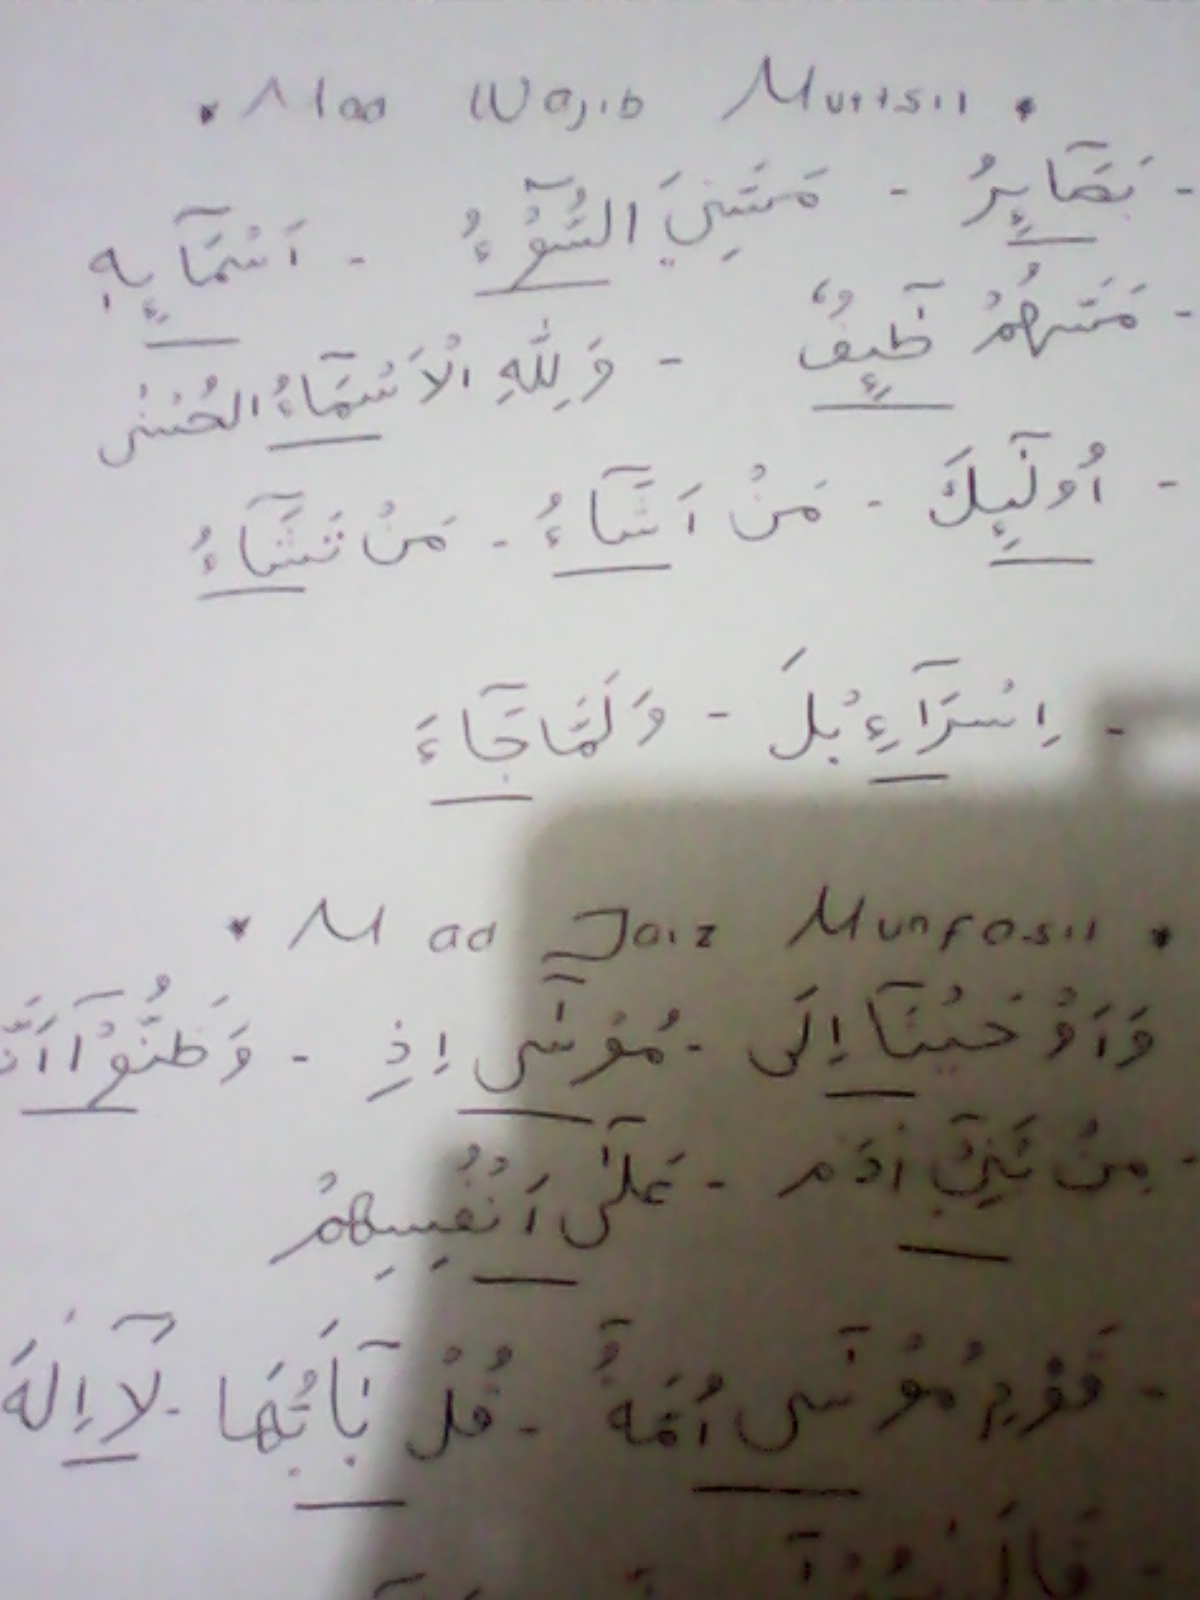 * Mad Wajib Muttsil *
- بَصَآىِٕرُ - مَسَّنِيَ السُّوْۤءُ - اَسْمَآىِٕهٖ
- مَسَّهُمْ طٰۤىِٕفٌ - وَلِلّٰهِ الْاَسْمَآءُ الْحُسْنٰى
- اُولٰۤىِٕكَ - مَنْ اَشَآءُ - مَنْ تَشَآءُ
- اِسْرَآءِيْلَ - وَلَمَّا جَآءَ
* Mad Jaiz Munfasil *
وَاَوْحَيْنَآ اِلَى - مُوْسٰٓى اِذِ - وَظَنُّوْٓا
- مِنْ بَنِيْٓ اٰدَمَ - عَلٰٓى اَنْفُسِهِمْ
- قَوْمِ مُوْسٰٓى اُمَّةٌ - قُلْ يٰٓاَيُّهَا - لَآ اِلٰهَ